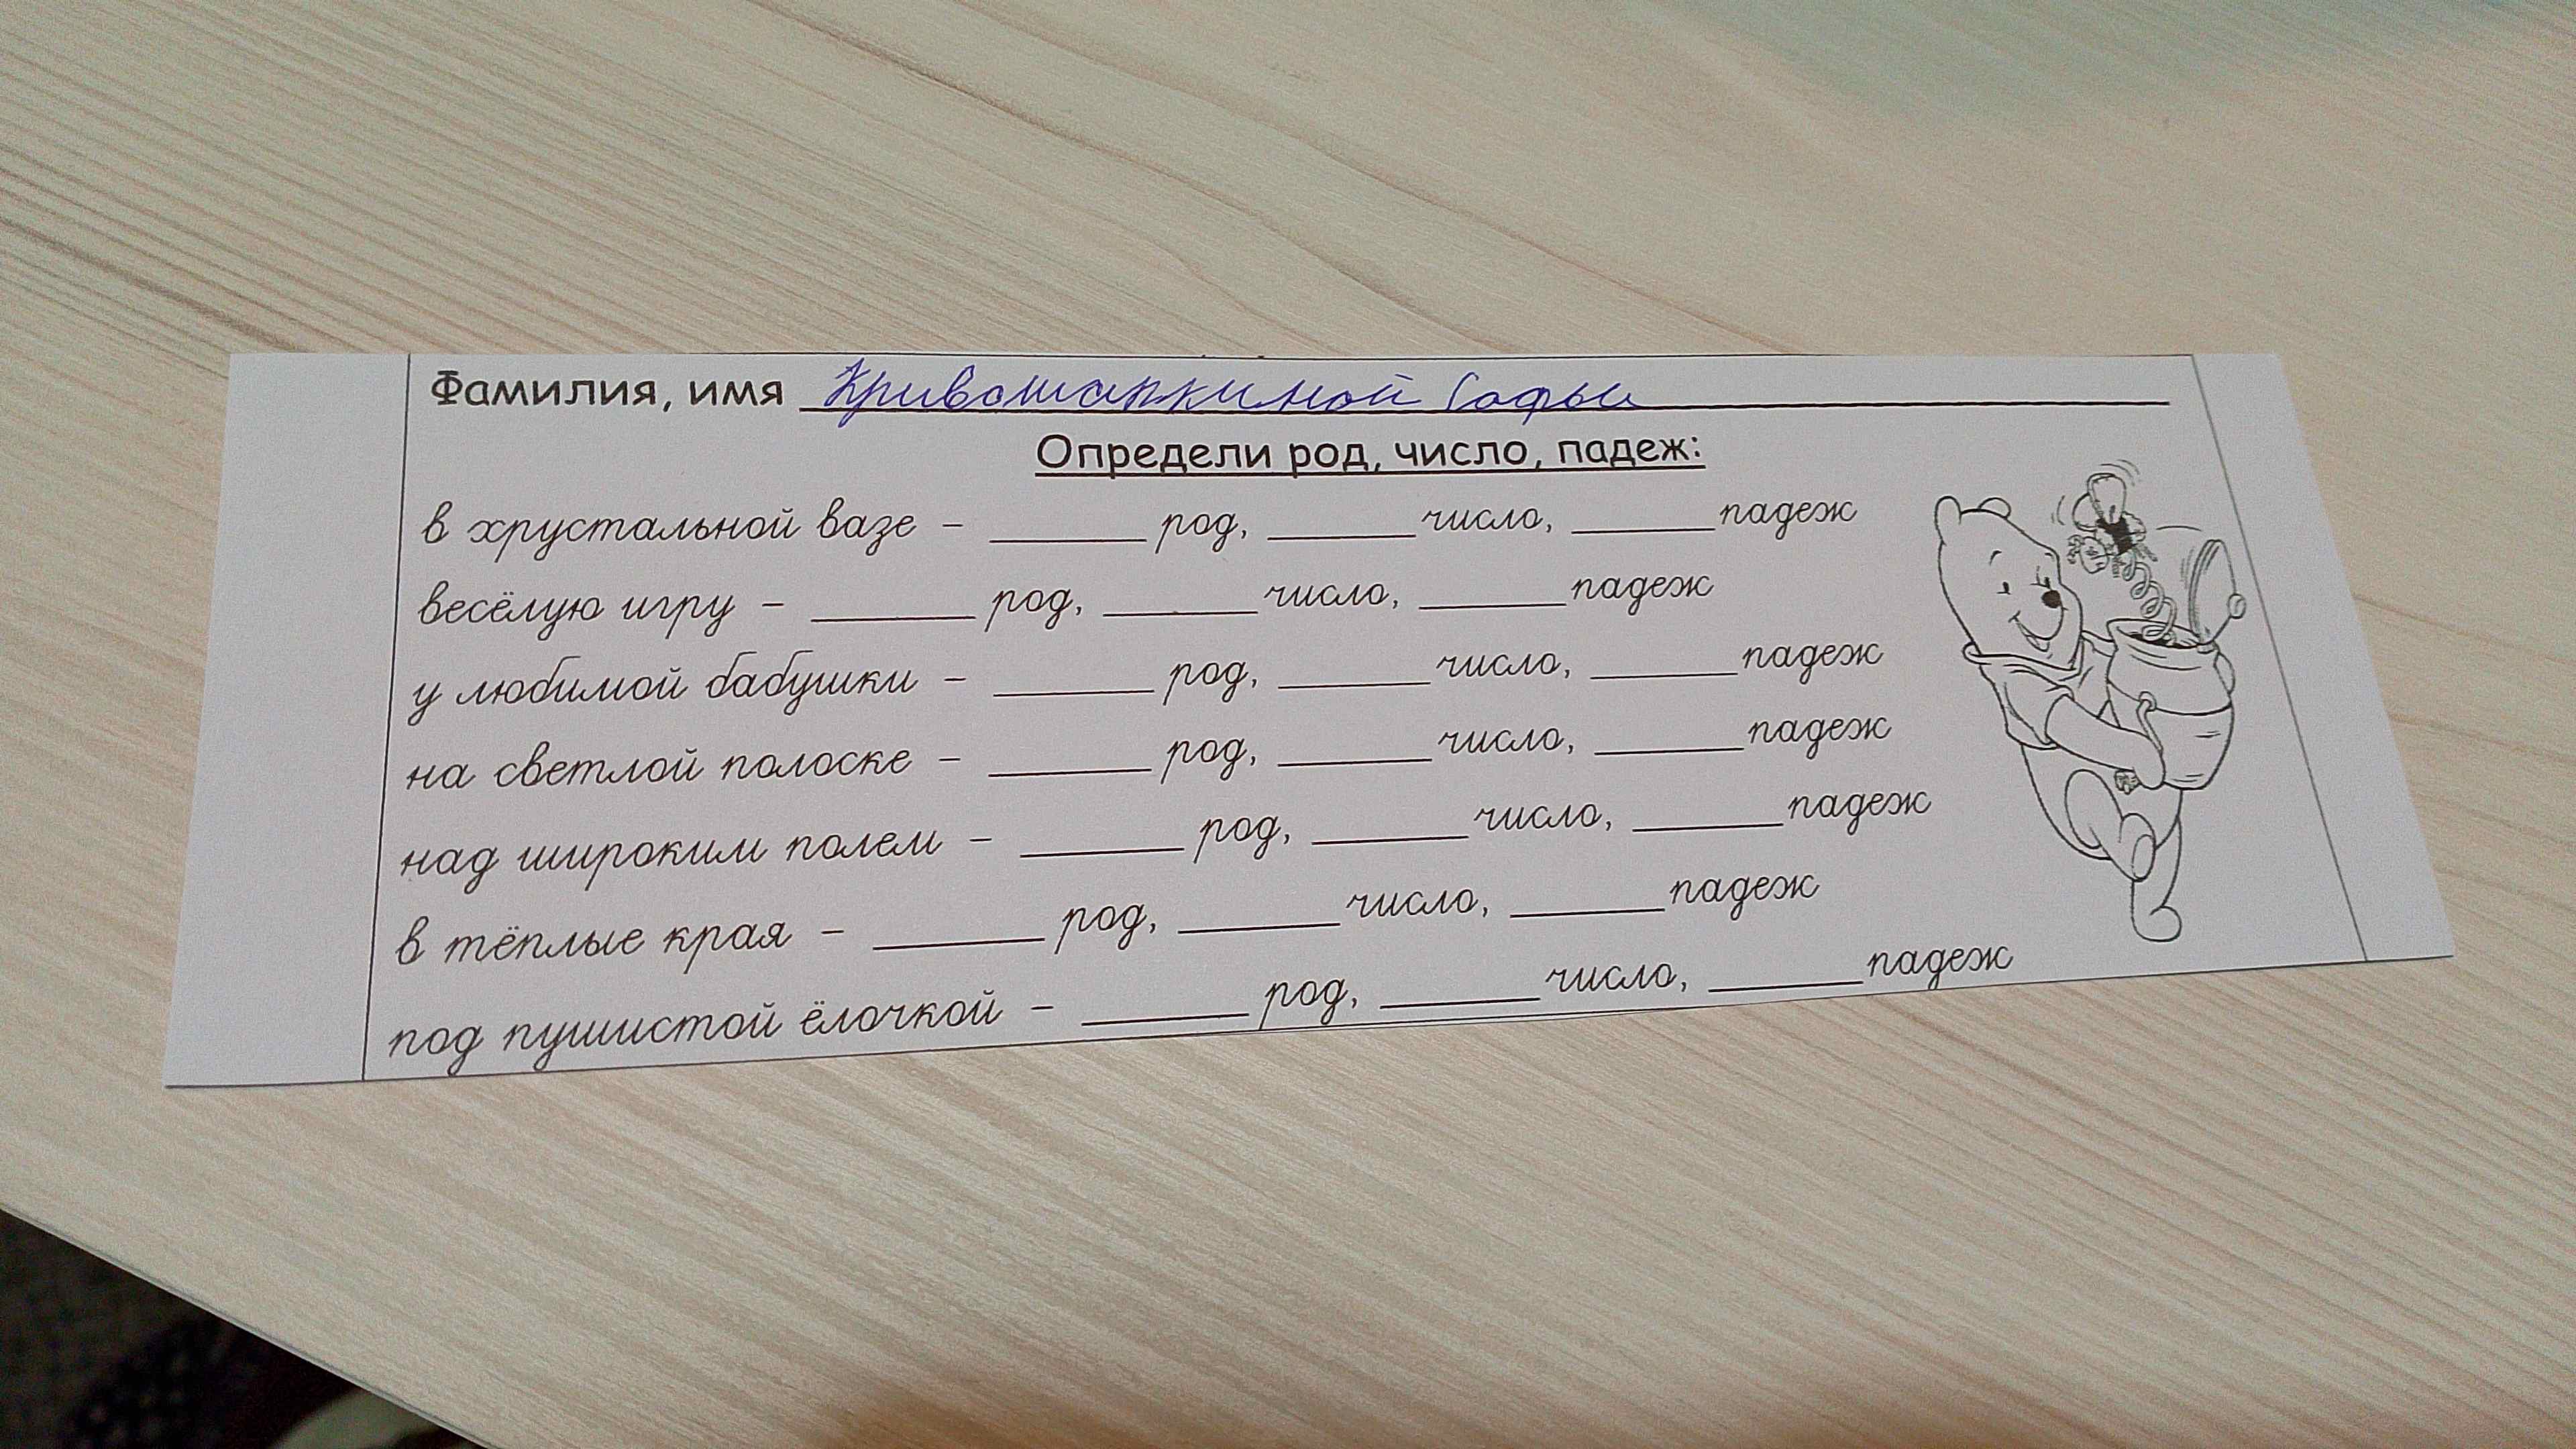 Фамилия, имя Кривошапкиной Софьи
Определи род, число, падеж:
в хрустальной вазе – ________ род, ________ число, ________ падеж
весёлую игру – ________ род, ________ число, ________ падеж
у любимой бабушки – ________ род, ________ число, ________ падеж
на светлой полоске – ________ род, ________ число, ________ падеж
над широким полем – ________ род, ________ число, ________ падеж
в тёплые края – ________ род, ________ число, ________ падеж
под пушистой ёлочкой – ________ род, ________ число, ________ падеж